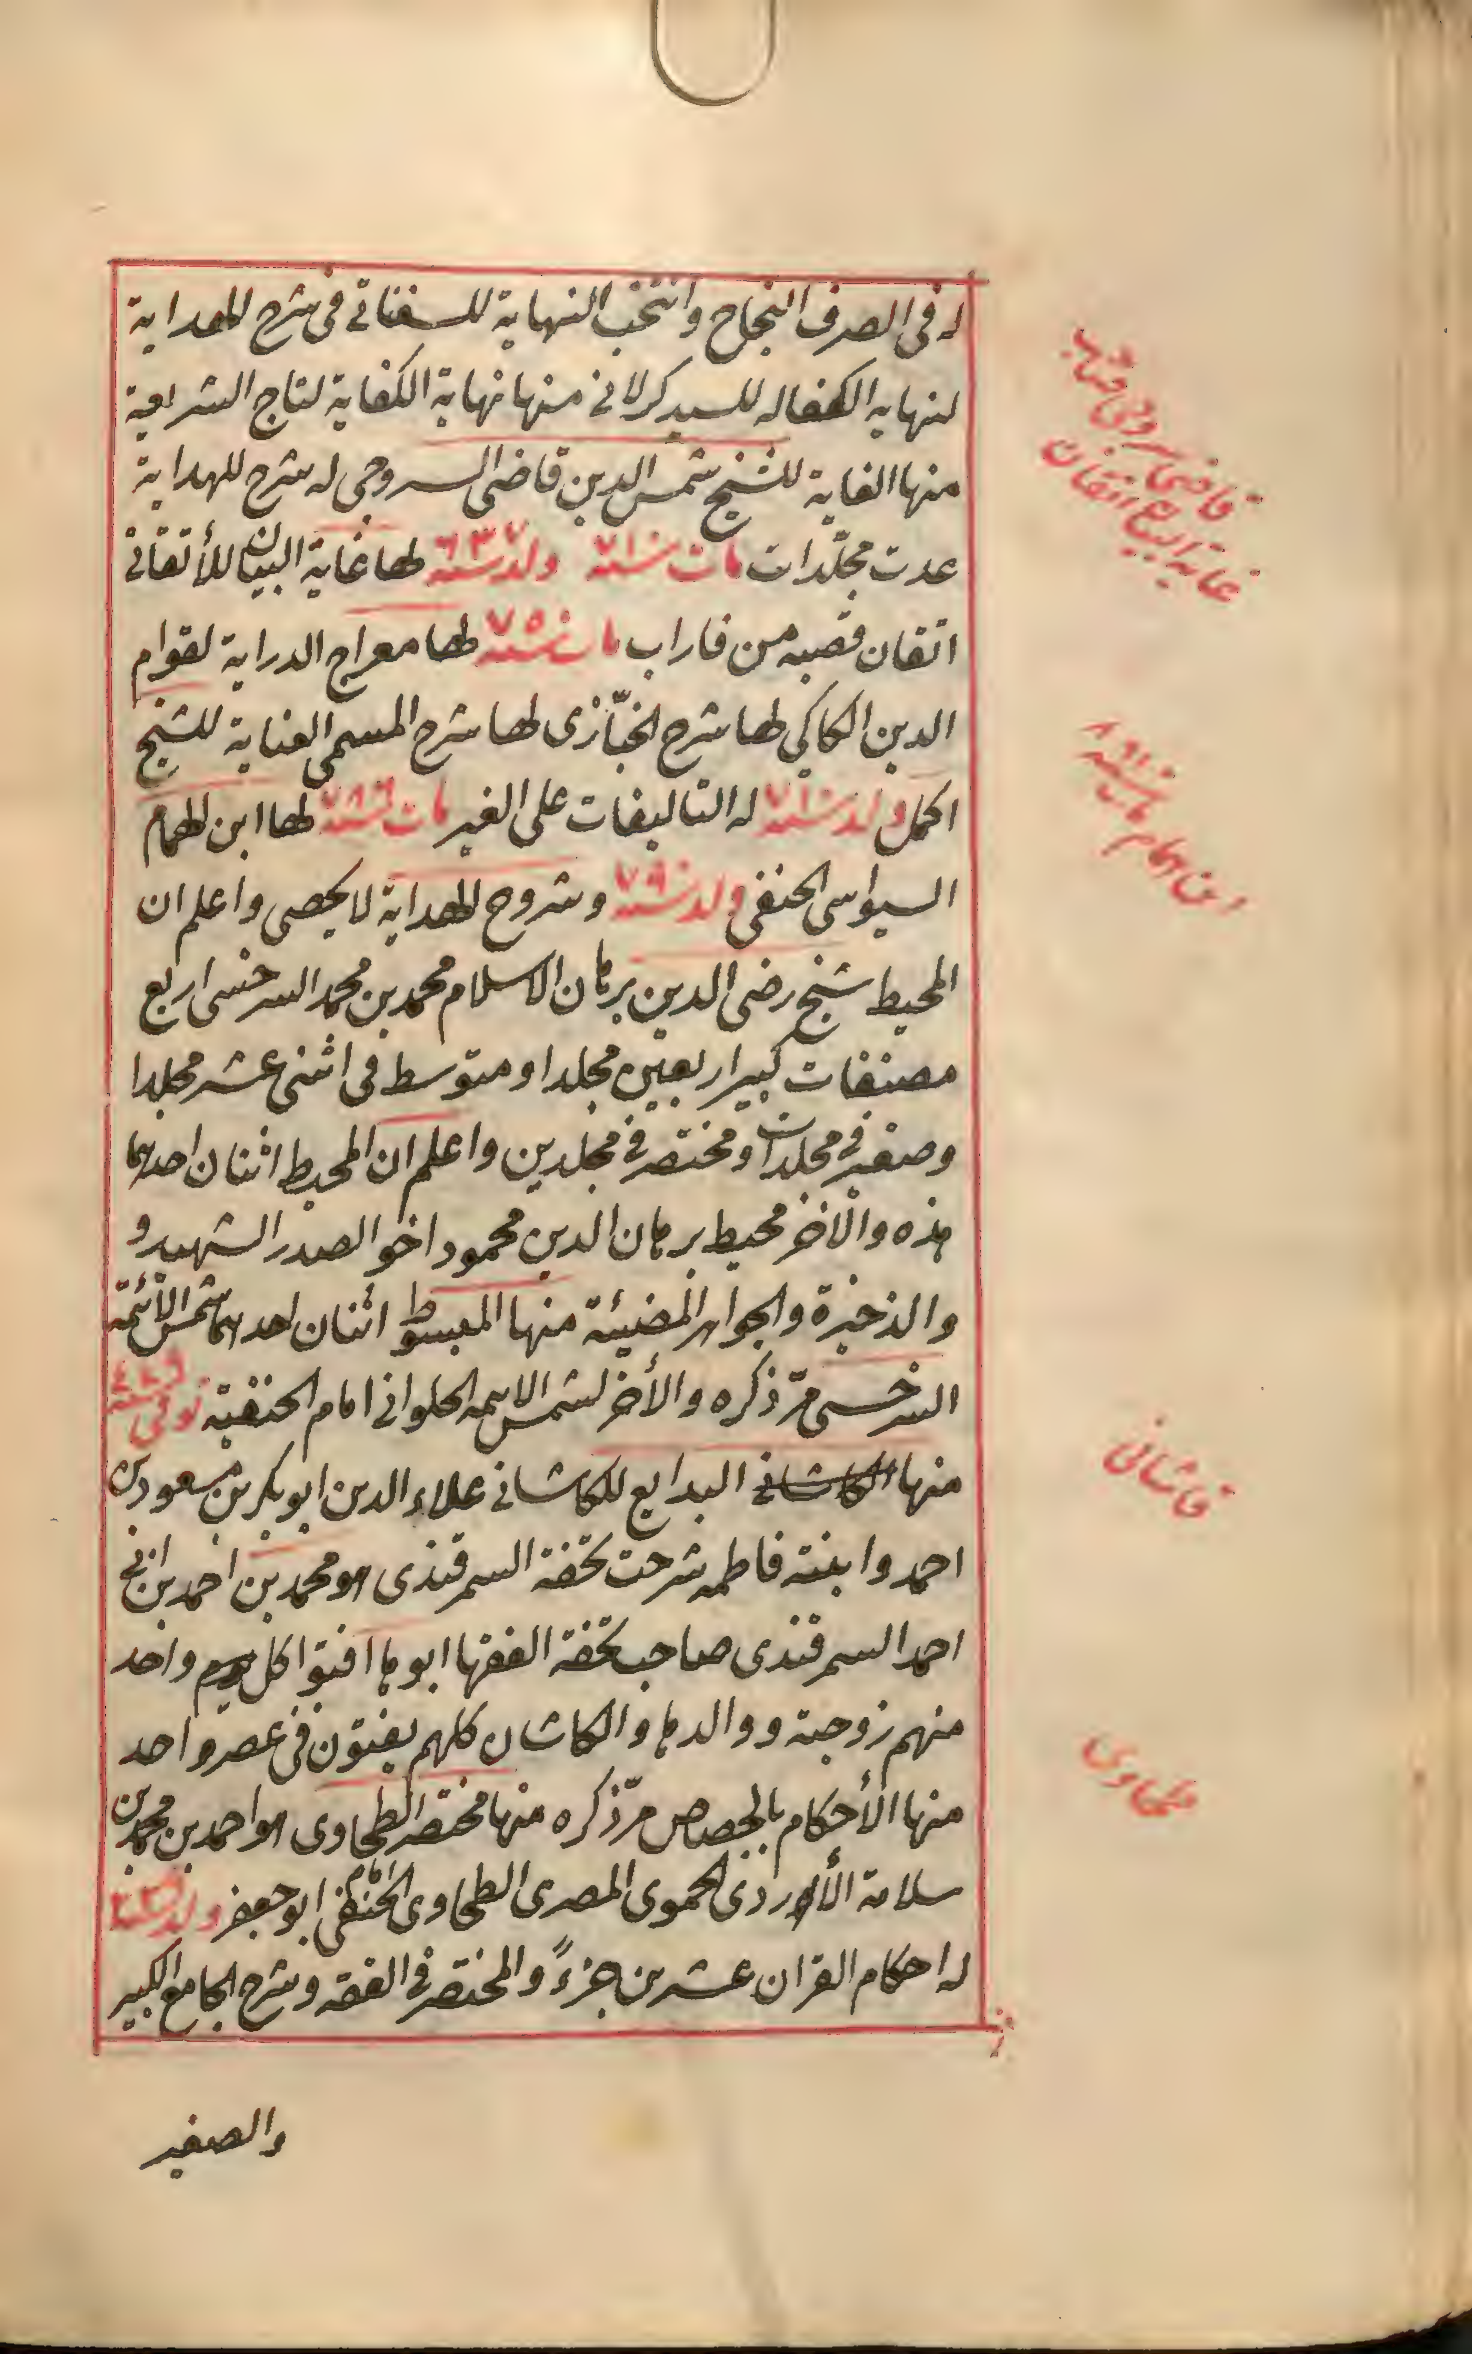 له في الصرف النجاح وانتخب النهاية للسغناقي في شرح الهداية
لنهايه الكفاله للسيد كرلاني منها نهاية الكفاية لتاج الشريعة
منها الغاية للشيخ شمس الدين قاضى السروجى له شرح للهداية
عدت مجلّدات مات سنة ٧١٠ ولد سنة ٦٣٧ لها غاية البيان للأتقاني
اتقان قصبه من فاراب مات سنة ٧٥٨ لها معراج الدراية لقوام
الدين الكاكي لها شرح الخبّازى لها شرح المسمى العناية للشيخ
اكمل ولد سنة ٧١٠ له التاليفات على الغير مات سنة ٧٨٦ لها ابن الهمام
السيواسى الحنفى ولد سنة ٧٩٠ وشروح الهداية لا يحصى واعلم ان
المحيط شيخ رضى الدين برهان الاسلام محمد بن محمد السرخسى اربع
مصنفات كبير اربعين مجلدا ومتوسط فى اثنى عشر مجلدا
وصغير في مجلدات ومختصر في مجلدين واعلم ان المحيط اثنان احدهما
هذه والآخر محيط برهان الدين محمود اخو الصدر الشهيد و
والذخيرة والجواهر المضيئة منها المبسوط اثنان احدهما شمس الائمة
السرخسى مرّ ذكره والأخر لشمس الايمه الحلوانى امام الحنفية توفى سنة
منها الكاشانى البدايع للكاشانى علاء الدين ابو بكر بن مسعود بن
احمد وابنته فاطمه شرحت تحفة السمرقندى هو محمد بن احمد بن ابي
احمد السمرقندى صاحب تحفة الفقها ابوها افتوا كل يوم واحد
منهم زوجته ووالدها والكاشان كلهم يفتون فى عصر واحد
منها الأحكام بالجصاص مرّ ذكره منها مختصر الطحاوى هو احمد بن محمد بن
سلامة الأزدى الحموى المصرى الطحاوى الحنفى امام ابو جعفر ولد سنة
له احكام القران عشرين جزءً والمختصر في الفقه وشرح الجامع الكبير
والصغير
قاضى سروجى صاحب
غاية البيان اتقان
ابن الهمام مات سنة ٨٦١
قاشانى
طحاوى